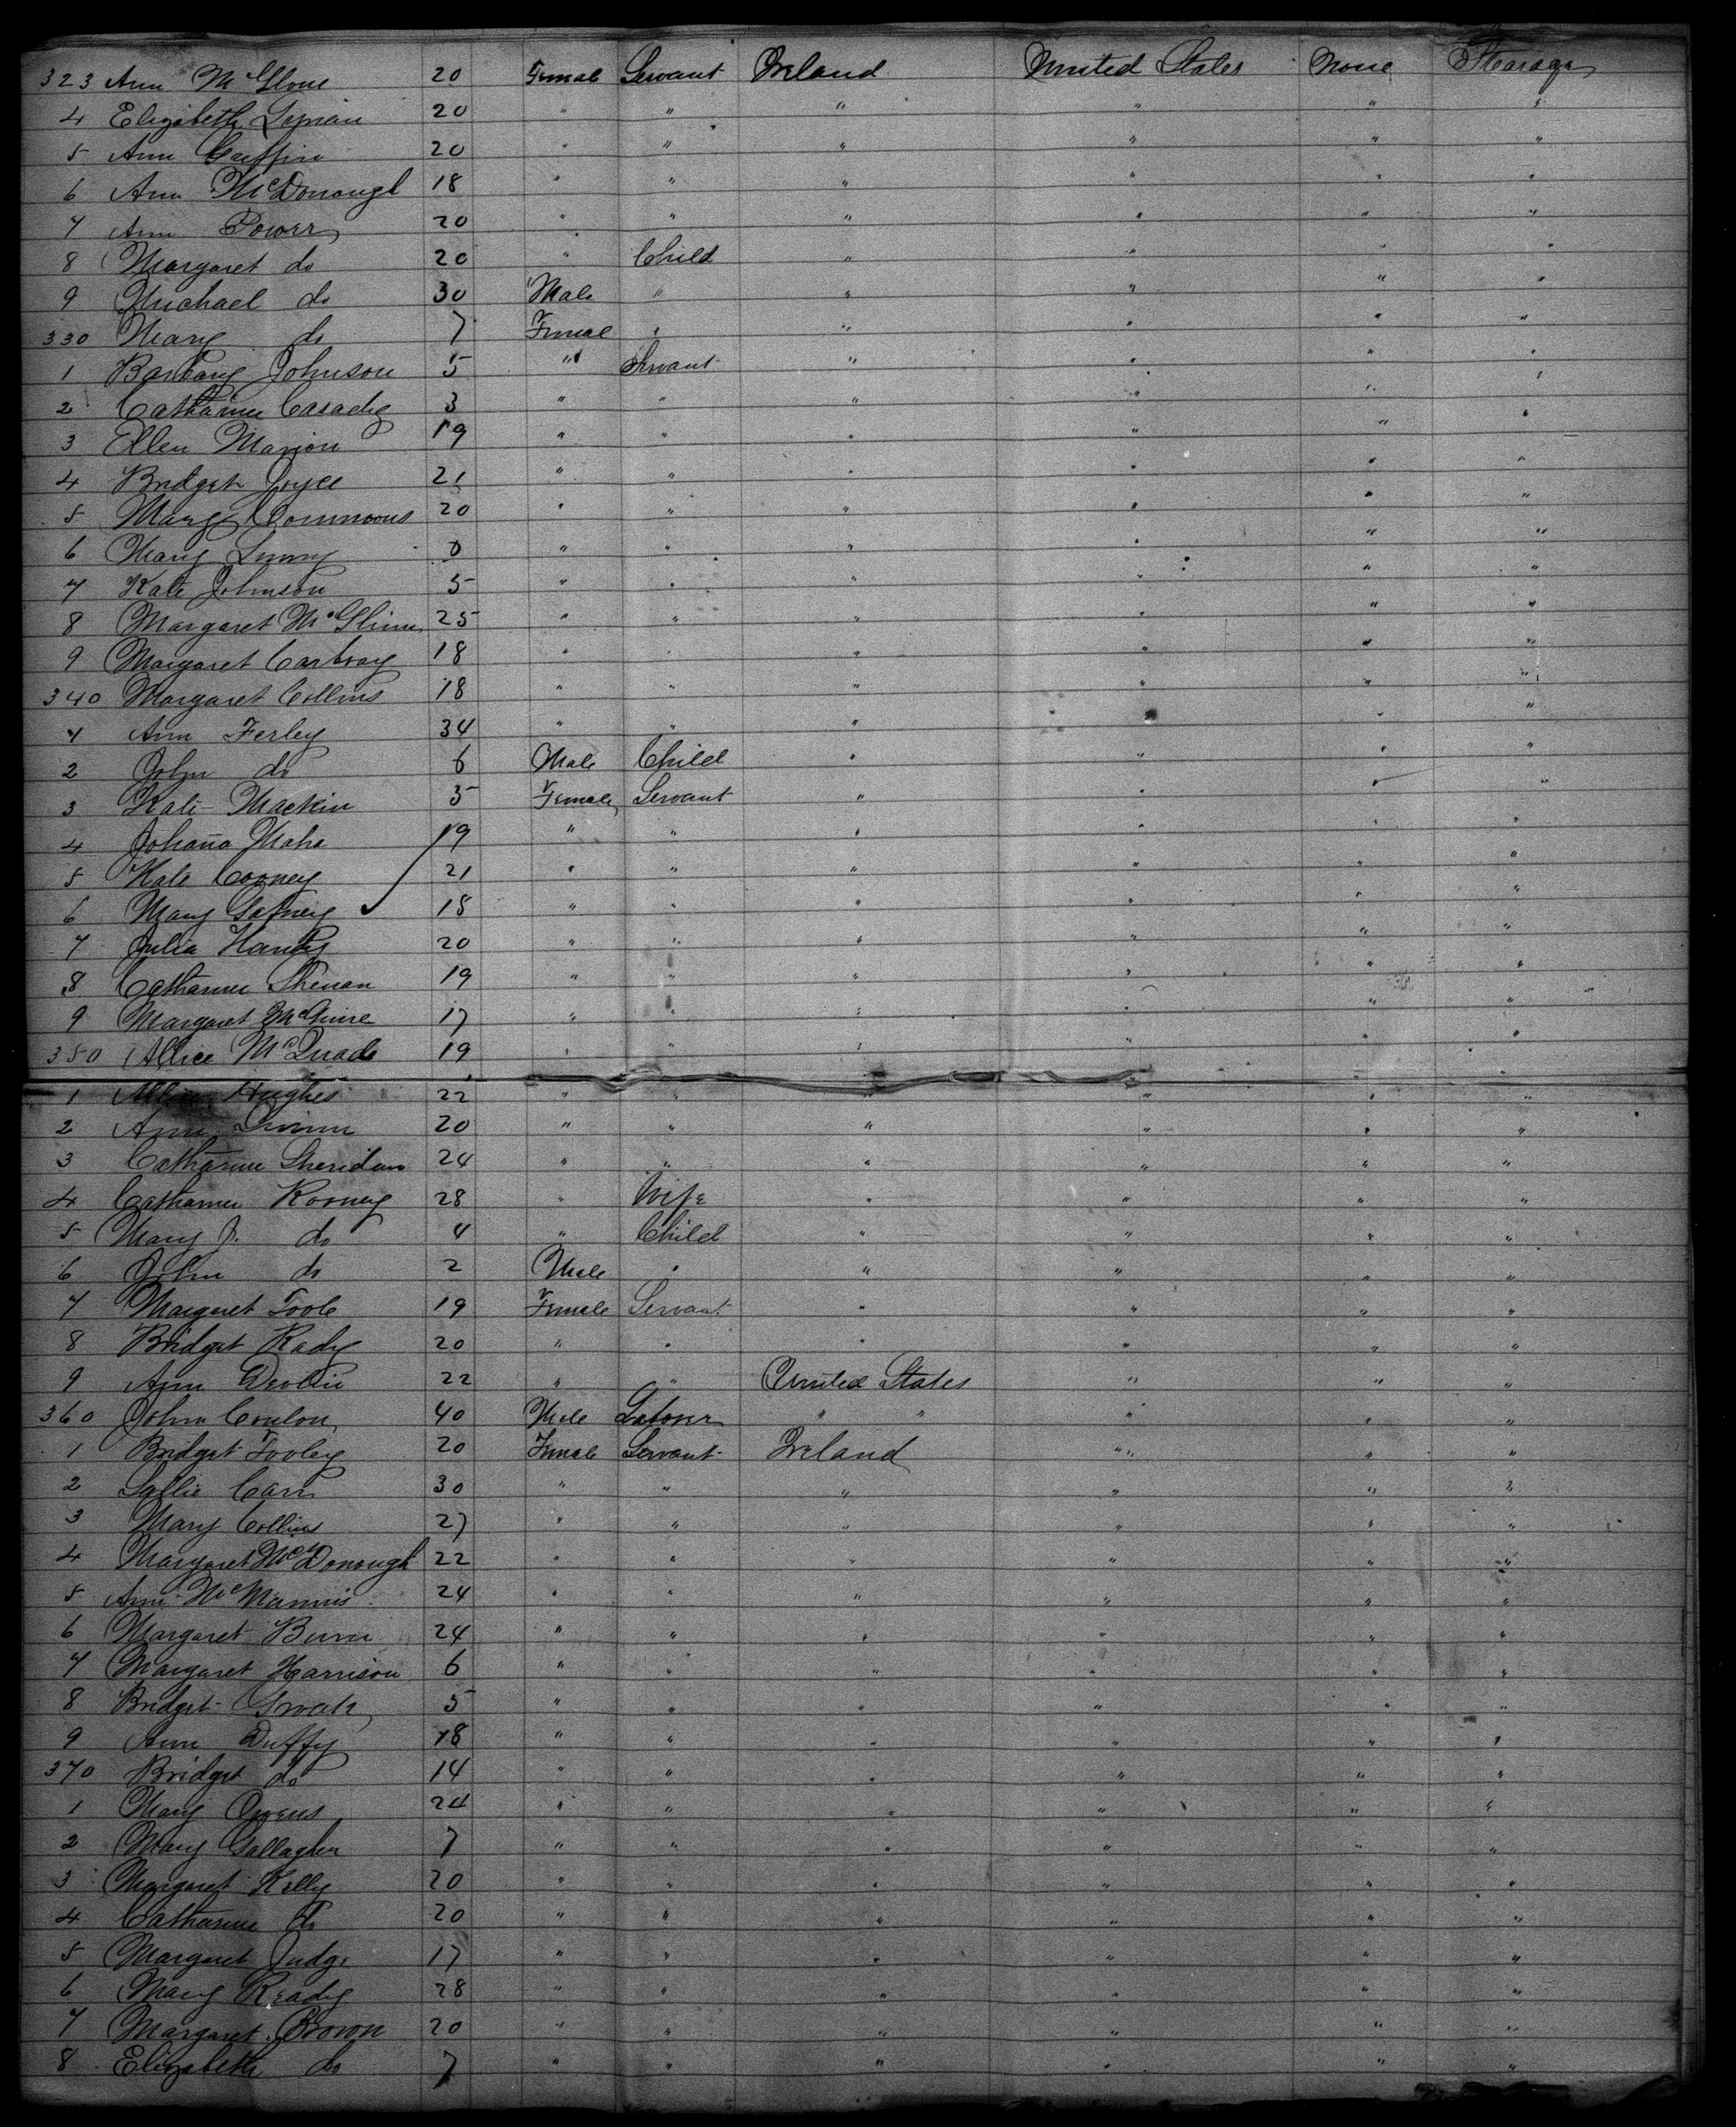 323 Ann McGlone 20 Female Servant Ireland United States None Stearage
4 Elizabeth 20 " " " " " "
5 Ann Griffin 20 " " " " " "
6 Ann McDonough 18 " " " " " "
7 Ann Power 20 " " " " " "
8 Margaret do 20 " Child " " " "
9 Michael do 30 Male " " " " "
330 Mary do 7 Female " " " " "
1 Johnson 5 " Servant " " " "
2 Catharine 3 " " " " " "
3 Ellen 19 " " " " " "
4 Bridget Joyce 21 " " " " " "
5 Mary Commoons 20 " " " " " "
6 Mary " " " " " "
7 Kate Johnson 5 " " " " " "
8 Margaret 25 " " " " " "
9 Margaret 18 " " " " " "
340 Margaret Collins 18 " " " " " "
1 Ann Ferley 34 " " " " " "
2 John do 6 Male Child " " " "
3 Kate Mackin 5 Female Servant " " " "
4 Johana Maha 19 " " " " " "
5 Kate Cooney 21 " " " " " "
6 Mary Gafney 18 " " " " " "
7 Julia 20 " " " " " "
8 Catharine 19 " " " " " "
9 Margaret McGuire 17 " " " " " "
350 Allice McQuade 19 " " " " " "
1 Hughes 22 " " " " " "
2 Ann 20 " " " " " "
3 Catharine Sheridan 24 " " " " " "
4 Catharine Rooney 28 " Wife " " " "
5 Mary J. do 4 " Child " " " "
6 John do 2 Male " " " " "
7 Margaret Toole 19 Female Servant " " " "
8 Bridget Kady 20 " " " " " "
9 Ann Devlin 22 " " United States " " "
360 John Conlon 40 Male Laborer " " " " "
1 Bridget Tooley 20 Female Servant Ireland " " "
2 Sallie Carr 30 " " " " " "
3 Mary Collins 27 " " " " " "
4 Margaret McDonough 22 " " " " " "
5 Ann McMannis 24 " " " " " "
6 Margaret 24 " " " " " "
7 Margaret Harrison 6 " " " " " "
8 Bridget 5 " " " " " "
9 Ann Duffy 18 " " " " " "
370 Bridget do 14 " " " " " "
1 Mary Owens 24 " " " " " "
2 Mary Gallagher 7 " " " " " "
3 Margaret Kelly 20 " " " " " "
4 Catharine do 20 " " " " " "
5 Margaret Judge 17 " " " " " "
6 Mary Ready 28 " " " " " "
7 Margaret Brown 20 " " " " " "
8 Elizabeth do 7 " " " " " "